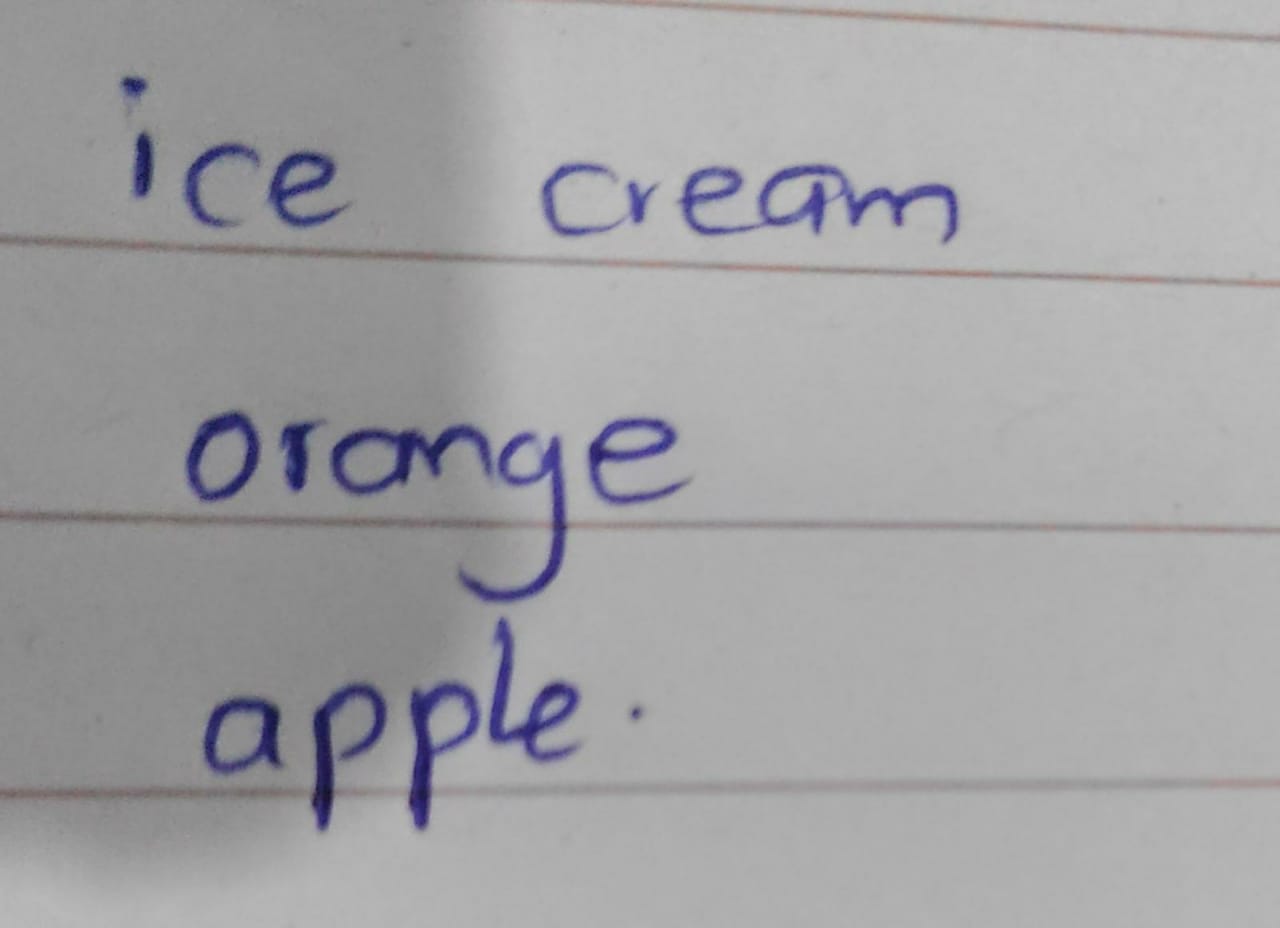 ice cream
orange
apple.